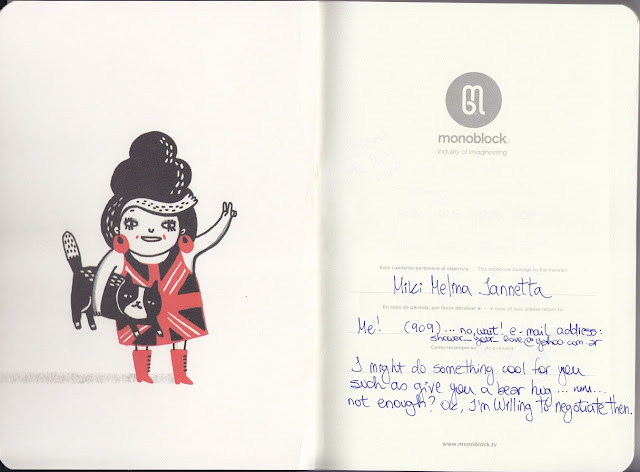 monoblock
industry of imagineering
Este cuaderno pertenece al viajero/a - This notebook belongs to the traveler
Miki Melina Iannetta
En caso de pérdida, por favor devolver a - In case of loss, please return to
Me! (909) ... no, wait! e-mail address:
shower_your_love@yahoo.com.ar
Como recompensa As a reward
I might do something cool for you
such as give you a bear hug ... mm...
not enough? ok, I'm Willing to negotiate then.
www.monoblock.tv